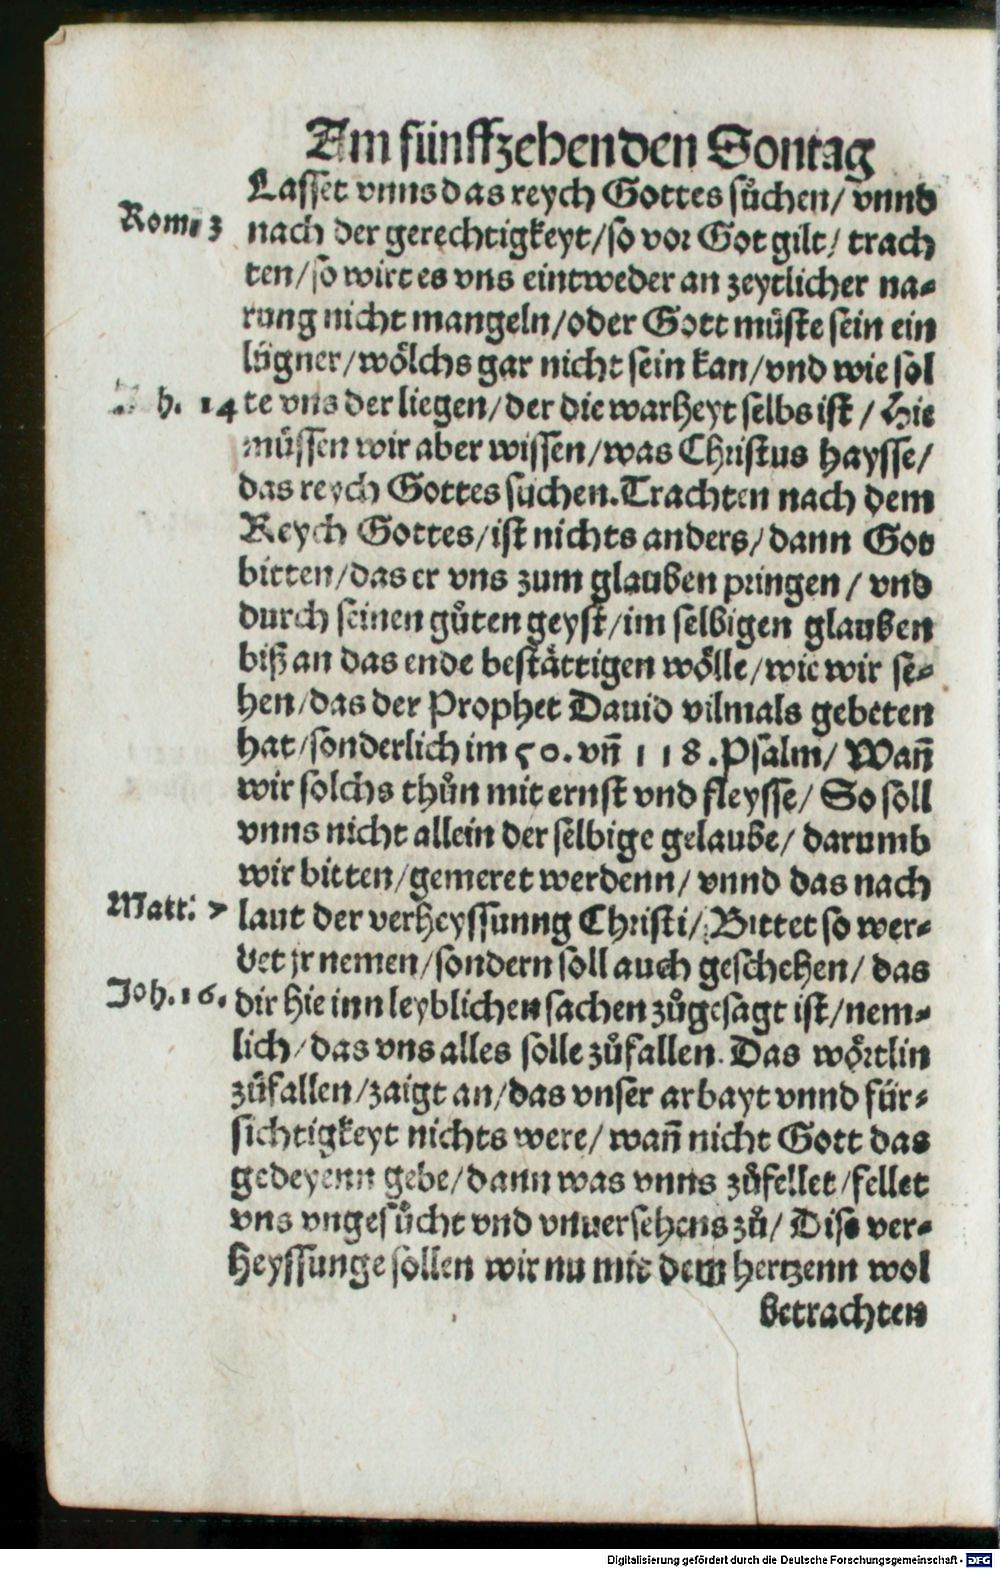 Am fünffzehenden Sontag
Lasset vnns das reych Gottes sůchen/ vnnd
Rom. 3 nach der gerechtigkeyt/ so vor Got gilt/ trach
ten/ so wirt es vns eintweder an zeytlicher na⸗
rung nicht mangeln/ oder Gott müste sein ein
lügner/ wölchs gar nicht sein kan/ vnd wie sol
Joh. 14 te vns der liegen/ der die warheyt selbs ist/ Hie
müssen wir aber wissen/ was Christus haysse/
das reych Gottes suchen. Trachten nach dem
Reych Gottes/ ist nichts anders/ dann Got
bitten/ das er vns zum glauben pringen/ vnd
durch seinen gůten geyst/ im selbigen glauben
biß an das ende bestättigen wölle/ wie wir se⸗
hen/ das der Prophet Dauid vilmals gebeten
hat/ sonderlich im 50. vñ 118. Psalm/ Wañ
wir solchs thůn mit ernst vnd fleysse/ So soll
vnns nicht allein der selbige gelaube/ darumb
wir bitten/ gemeret werdenn/ vnnd das nach
Matt. 7 laut der verheyssunng Christi/ Bittet so wer⸗
det jr nemen/ sondern soll auch geschehen/ das
Joh. 16. dir hie inn leyblichen sachen zůgesagt ist/ nem⸗
lich/ das vns alles solle zůfallen. Das wörtlin
zůfallen/ zaigt an/ das vnser arbayt vnnd für⸗
sichtigkeyt nichts were/ wañ nicht Gott das
gedeyenn gebe/ dann was vnns zůfellet/ fellet
vns vngesůcht vnd vnuersehens zů/ Dise ver⸗
heyssunge sollen wir nu mit dem hertzenn wol
betrachten
Digitalisierung gefördert durch die Deutsche Forschungsgemeinschaft - DFG